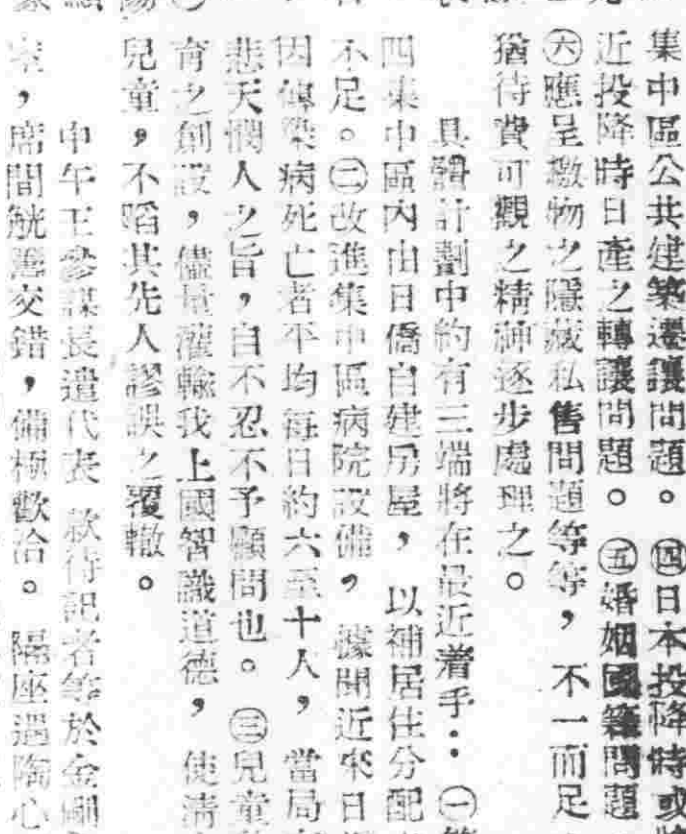 集中區公共建築遷讓問題。㊃日本投降時或
近投降時日產之轉讓問題。㊄婚姻國籍問題
㊅應呈繳物之隱藏私售問題等等，不一而足
猶待費可觀之精神逐步處理之。
具體計劃中約有三端將在最近着手：㊀
四集中區內由日僑自建房屋，以補居住分配
不足。㊁改進集中區病院設備，據聞近來日
因傳染病死亡者平均每日約六至十人，當局
悲天憫人之旨，自不忍不予顧問也。㊂兒童
育之創設，儘量灌輸我上國智識道德，使清
兒童，不蹈其先人謬誤之覆轍。
中午王參謀長遣代表 款待記者等於金剛
席間觥籌交錯，備極歡洽。隔座遇陶心